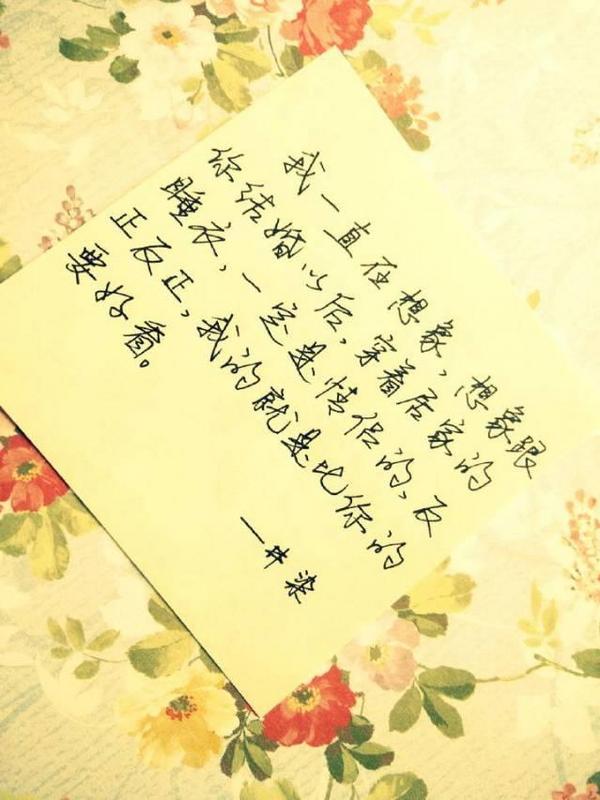 我一直在想象，想象跟
你结婚以后，穿着居家的
睡衣，一定是情侣的，反
正反正，我的就是比你的
要好看。
—井柒